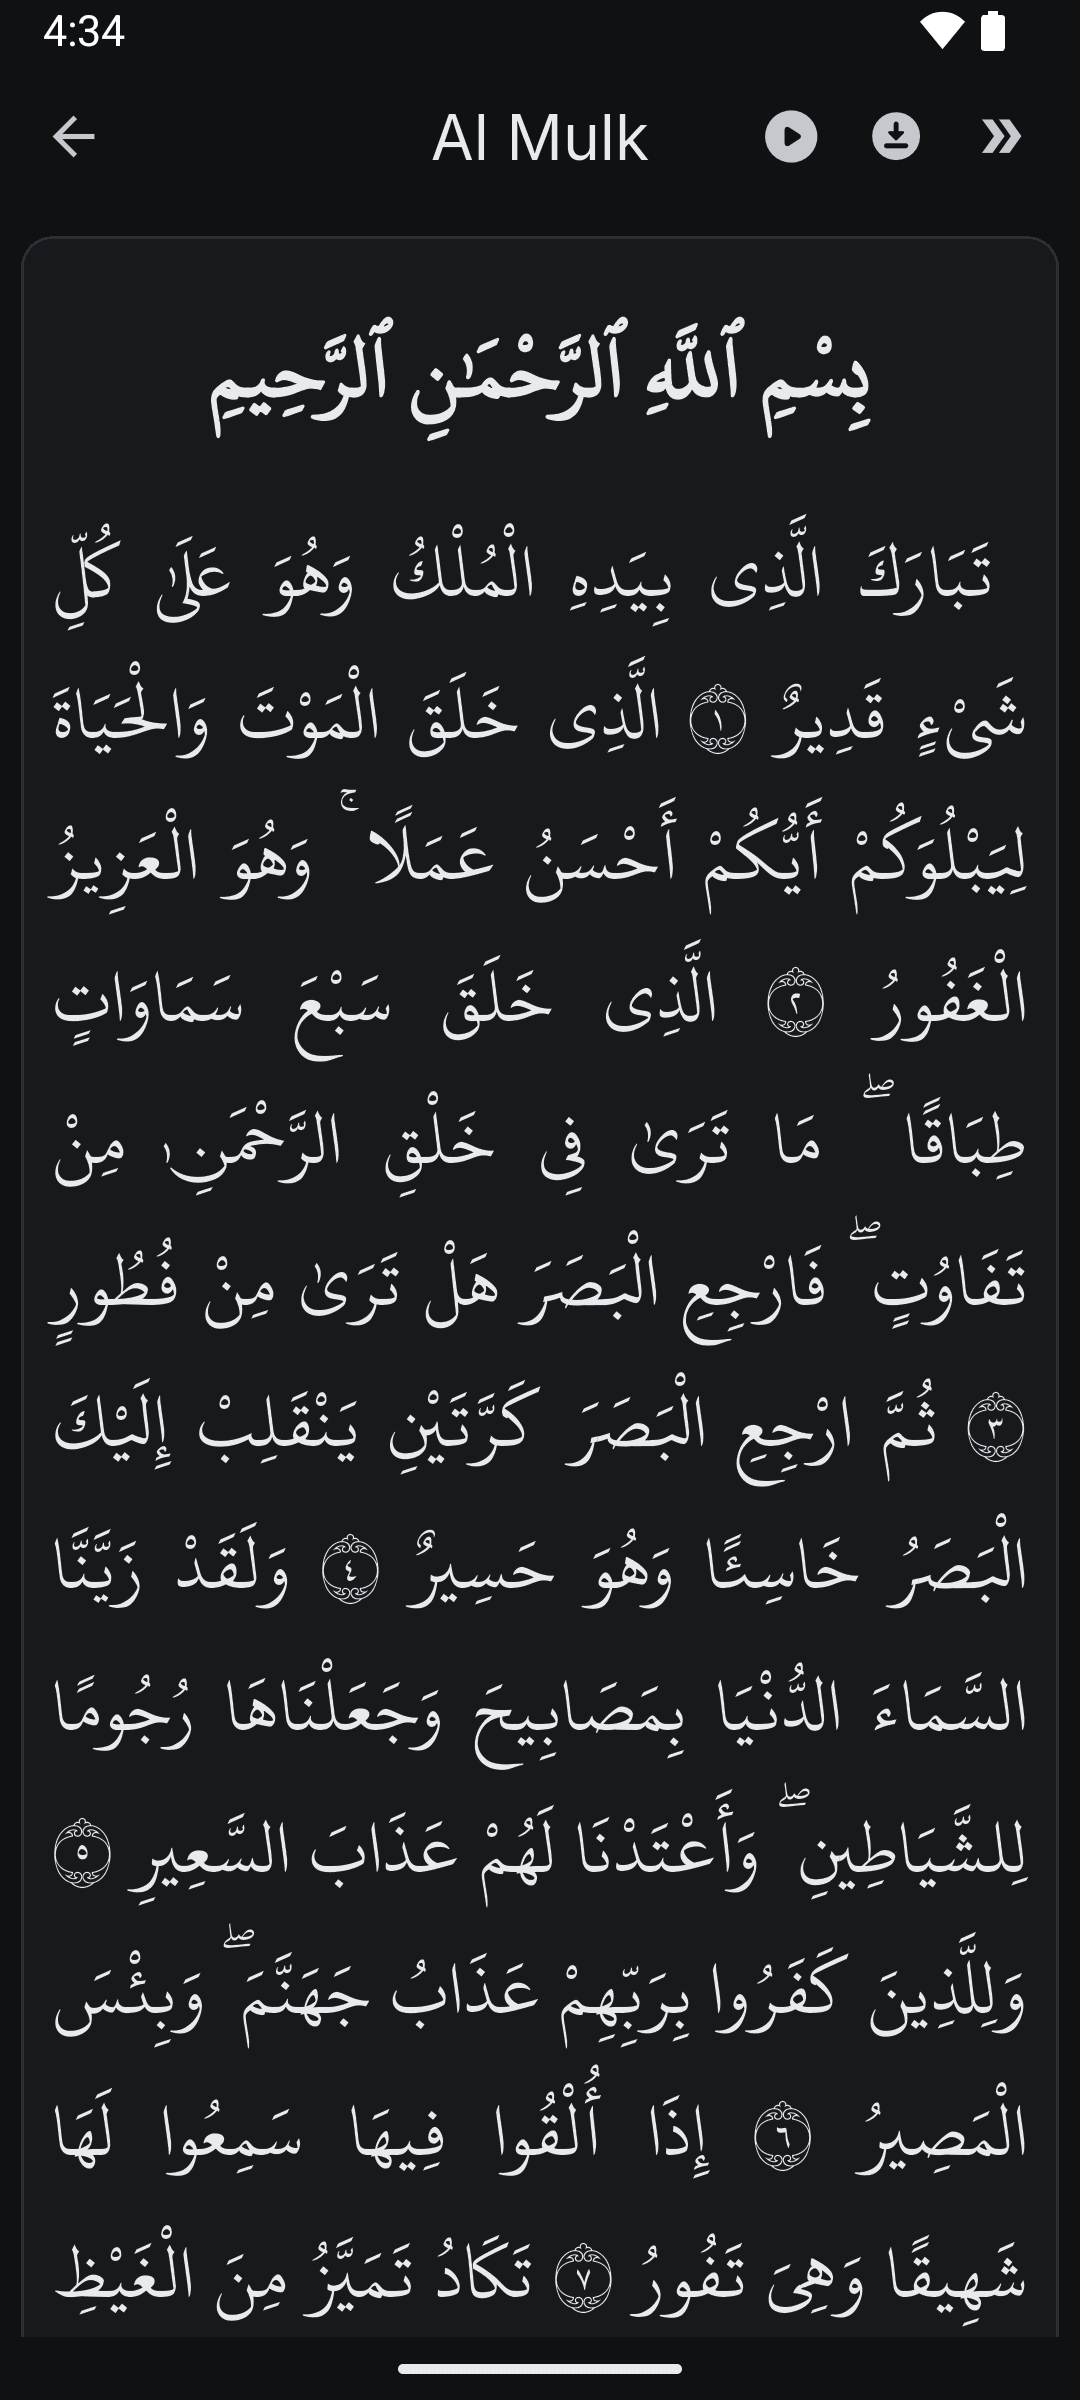 4:34
Al Mulk
بِسْمِ ٱللَّهِ ٱلرَّحْمَـٰنِ ٱلرَّحِيمِ
تَبَارَكَ الَّذِى بِيَدِهِ الْمُلْكُ وَهُوَ عَلَىٰ كُلِّ
شَىْءٍ قَدِيرٌ ١ الَّذِى خَلَقَ الْمَوْتَ وَالْحَيَاةَ
لِيَبْلُوَكُمْ أَيُّكُمْ أَحْسَنُ عَمَلًا ۚ وَهُوَ الْعَزِيزُ
الْغَفُورُ ٢ الَّذِى خَلَقَ سَبْعَ سَمَاوَاتٍ
طِبَاقًا ۖ مَا تَرَىٰ فِى خَلْقِ الرَّحْمَنِٰ مِنْ
تَفَاوُتٍ ۖ فَارْجِعِ الْبَصَرَ هَلْ تَرَىٰ مِنْ فُطُورٍ
٣ ثُمَّ ارْجِعِ الْبَصَرَ كَرَّتَيْنِ يَنْقَلِبْ إِلَيْكَ
الْبَصَرُ خَاسِئًا وَهُوَ حَسِيرٌ ٤ وَلَقَدْ زَيَّنَّا
السَّمَاءَ الدُّنْيَا بِمَصَابِيحَ وَجَعَلْنَاهَا رُجُومًا
لِلشَّيَاطِينِ ۖ وَأَعْتَدْنَا لَهُمْ عَذَابَ السَّعِيرِ ٥
وَلِلَّذِينَ كَفَرُوا بِرَبِّهِمْ عَذَابُ جَهَنَّمَ ۖ وَبِئْسَ
الْمَصِيرُ ٦ إِذَا أُلْقُوا فِيهَا سَمِعُوا لَهَا
شَهِيقًا وَهِىَ تَفُورُ ٧ تَكَادُ تَمَيَّزُ مِنَ الْغَيْظِ